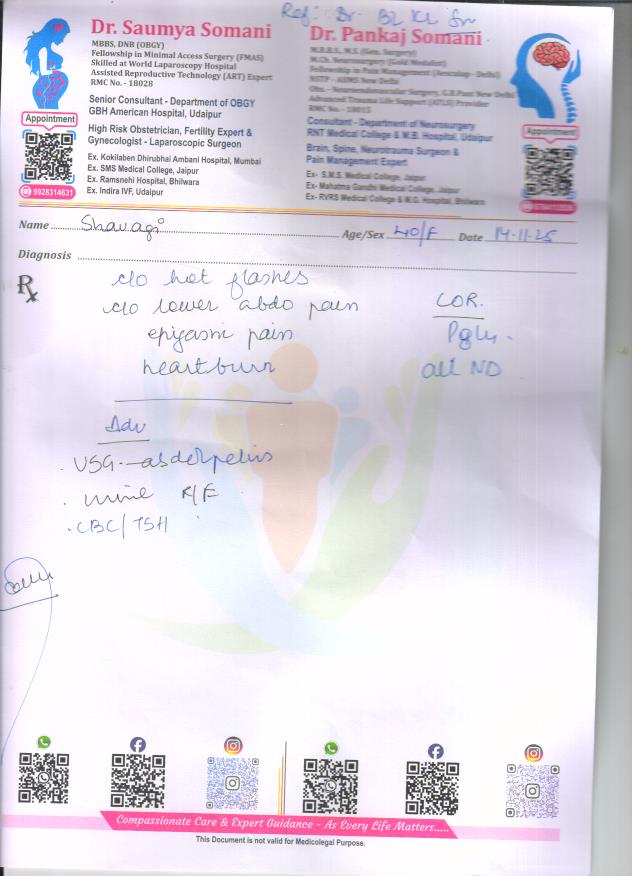 Ref: Dr. BL KL Sm
Dr. Saumya Somani
MBBS, DNB (OBGY)
Fellowship in Minimal Access Surgery (FMAS)
Skilled at World Laparoscopy Hospital
Assisted Reproductive Technology (ART) Expert
RMC No. - 18028
Senior Consultant - Department of OBGY
GBH American Hospital, Udaipur
High Risk Obstetrician, Fertility Expert &
Gynecologist - Laparoscopic Surgeon
Ex. Kokilaben Dhirubhai Ambani Hospital, Mumbai
Ex. SMS Medical College, Jaipur
Ex. Ramsnehi Hospital, Bhilwara
Ex. Indira IVF, Udaipur
Appointment
9928314631
Dr. Pankaj Somani
M.B.B.S., M.S. (Gen. Surgery)
M.Ch. Neurosurgery (Gold Medalist)
Fellowship in Pain Management (Aesculap - Delhi)
Advanced Trauma Life Support (ATLS) Provider
Consultant - Department of Neurosurgery
RNT Medical College & M.B. Hospital, Udaipur
Brain, Spine, Neurotrauma Surgeon &
Pain Management Expert
Ex- S.M.S. Medical College, Jaipur
Ex- Mahatma Gandhi Medical College, Jaipur
Ex- RVRS Medical College & M.G. Hospital, Bhilwara
Appointment
Name Age/Sex 40/F Date 14-11-25
Diagnosis
Rx
c/o hot flashes
c/o lower abdo pain
pain
heartburn
all ND
Adv
. USG
. urine R/E
. CBC/TSH
Compassionate Care & Expert Guidance - As Every Life Matters.....
This Document is not valid for Medicolegal Purpose.